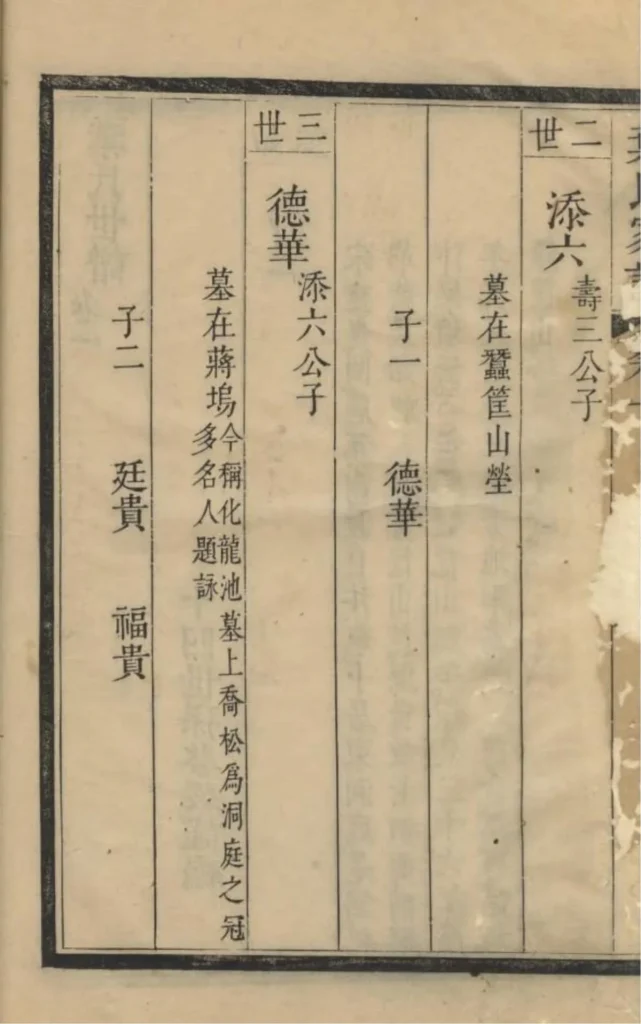 二世
添六 壽三公子
墓在蠶筐山塋
子一 德華
三世
德華 添六公子
墓在蔣塢今稱化龍池墓上喬松爲洞庭之冠
多名人題詠
子二 廷貴 福貴